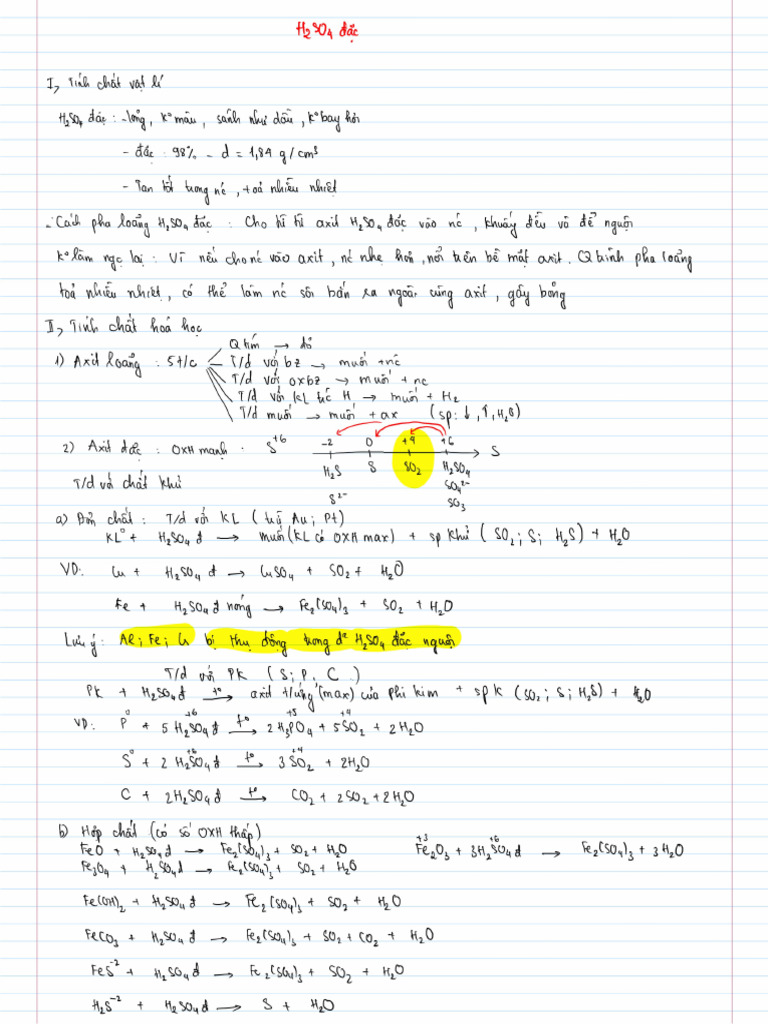 H₂SO₄ đặc
I, Tính chất vật lí
H₂SO₄ đặc : - lỏng, k° màu, sánh như dầu, k° bay hơi
- đặc : 98% - d = 1,84 g/cm³
- Tan tốt trong nc, toả nhiều nhiệt
- Cách pha loãng H₂SO₄ đặc : Cho từ từ axit H₂SO₄ đặc vào nc, khuấy đều và để nguội
k° làm ngc lại : Vì nếu cho nc vào axit, nc nhẹ hơn, nổi trên bề mặt axit. Q trình pha loãng
toả nhiều nhiệt, có thể làm nc sôi bắn ra ngoài cùng axit, gây bỏng
II, Tính chất hoá học
1) Axit loãng : 5 t/c
Q tím → đỏ
T/d với bz → muối + nc
T/d với oxbz → muối + nc
T/d với KL trc H → muối + H₂
T/d muối → muối + ax (sp: ↓, ↑, H₂S)
2) Axit đặc : OXH mạnh . S⁺⁶
-2 0 +4 +6 S
H₂S S SO₂ H₂SO₄
S²⁻ SO₄²⁻
SO₃
T/d với chất khử
a) Đơn chất : T/d với KL ( trừ Au ; Pt)
KL⁰ + H₂SO₄đ → muối (KL có OXH max) + sp khử ( SO₂ ; S ; H₂S) + H₂O
VD: Cu + H₂SO₄đ → CuSO₄ + SO₂ + H₂O
Fe + H₂SO₄đ nóng → Fe₂(SO₄)₃ + SO₂ + H₂O
Lưu ý : Al ; Fe ; Cr bị thụ động trong d² H₂SO₄ đặc nguội
T/d với PK ( S ; P, C )
PK + H₂SO₄đ →t° axit t/ứng (max) của phi kim + sp k (SO₂ ; S ; H₂S) + H₂O
VD: P⁰ + 5H₂S⁺⁶O₄đ →t° 2H₃P⁺⁵O₄ + 5S⁺⁴O₂ + 2H₂O
S⁰ + 2H₂S⁺⁶O₄đ →t° 3S⁺⁴O₂ + 2H₂O
C + 2H₂SO₄đ →t° CO₂ + 2SO₂ + 2H₂O
b) Hợp chất (có số OXH thấp)
FeO + H₂SO₄đ → Fe₂(SO₄)₃ + SO₂ + H₂O Fe₂⁺³O₃ + 3H₂S⁺⁶O₄đ → Fe₂(SO₄)₃ + 3H₂O
Fe₃O₄ + H₂SO₄đ → Fe₂(SO₄)₃ + SO₂ + H₂O
Fe(OH)₂ + H₂SO₄đ → Fe₂(SO₄)₃ + SO₂ + H₂O
FeCO₃ + H₂SO₄đ → Fe₂(SO₄)₃ + SO₂ + CO₂ + H₂O
FeS⁻² + H₂SO₄đ → Fe₂(SO₄)₃ + SO₂ + H₂O
H₂S⁻² + H₂SO₄đ → S + H₂O